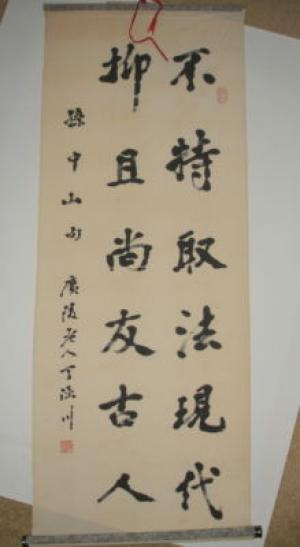 不特取法現代
抑且尚友古人
孫中山句 廣陵老人丁